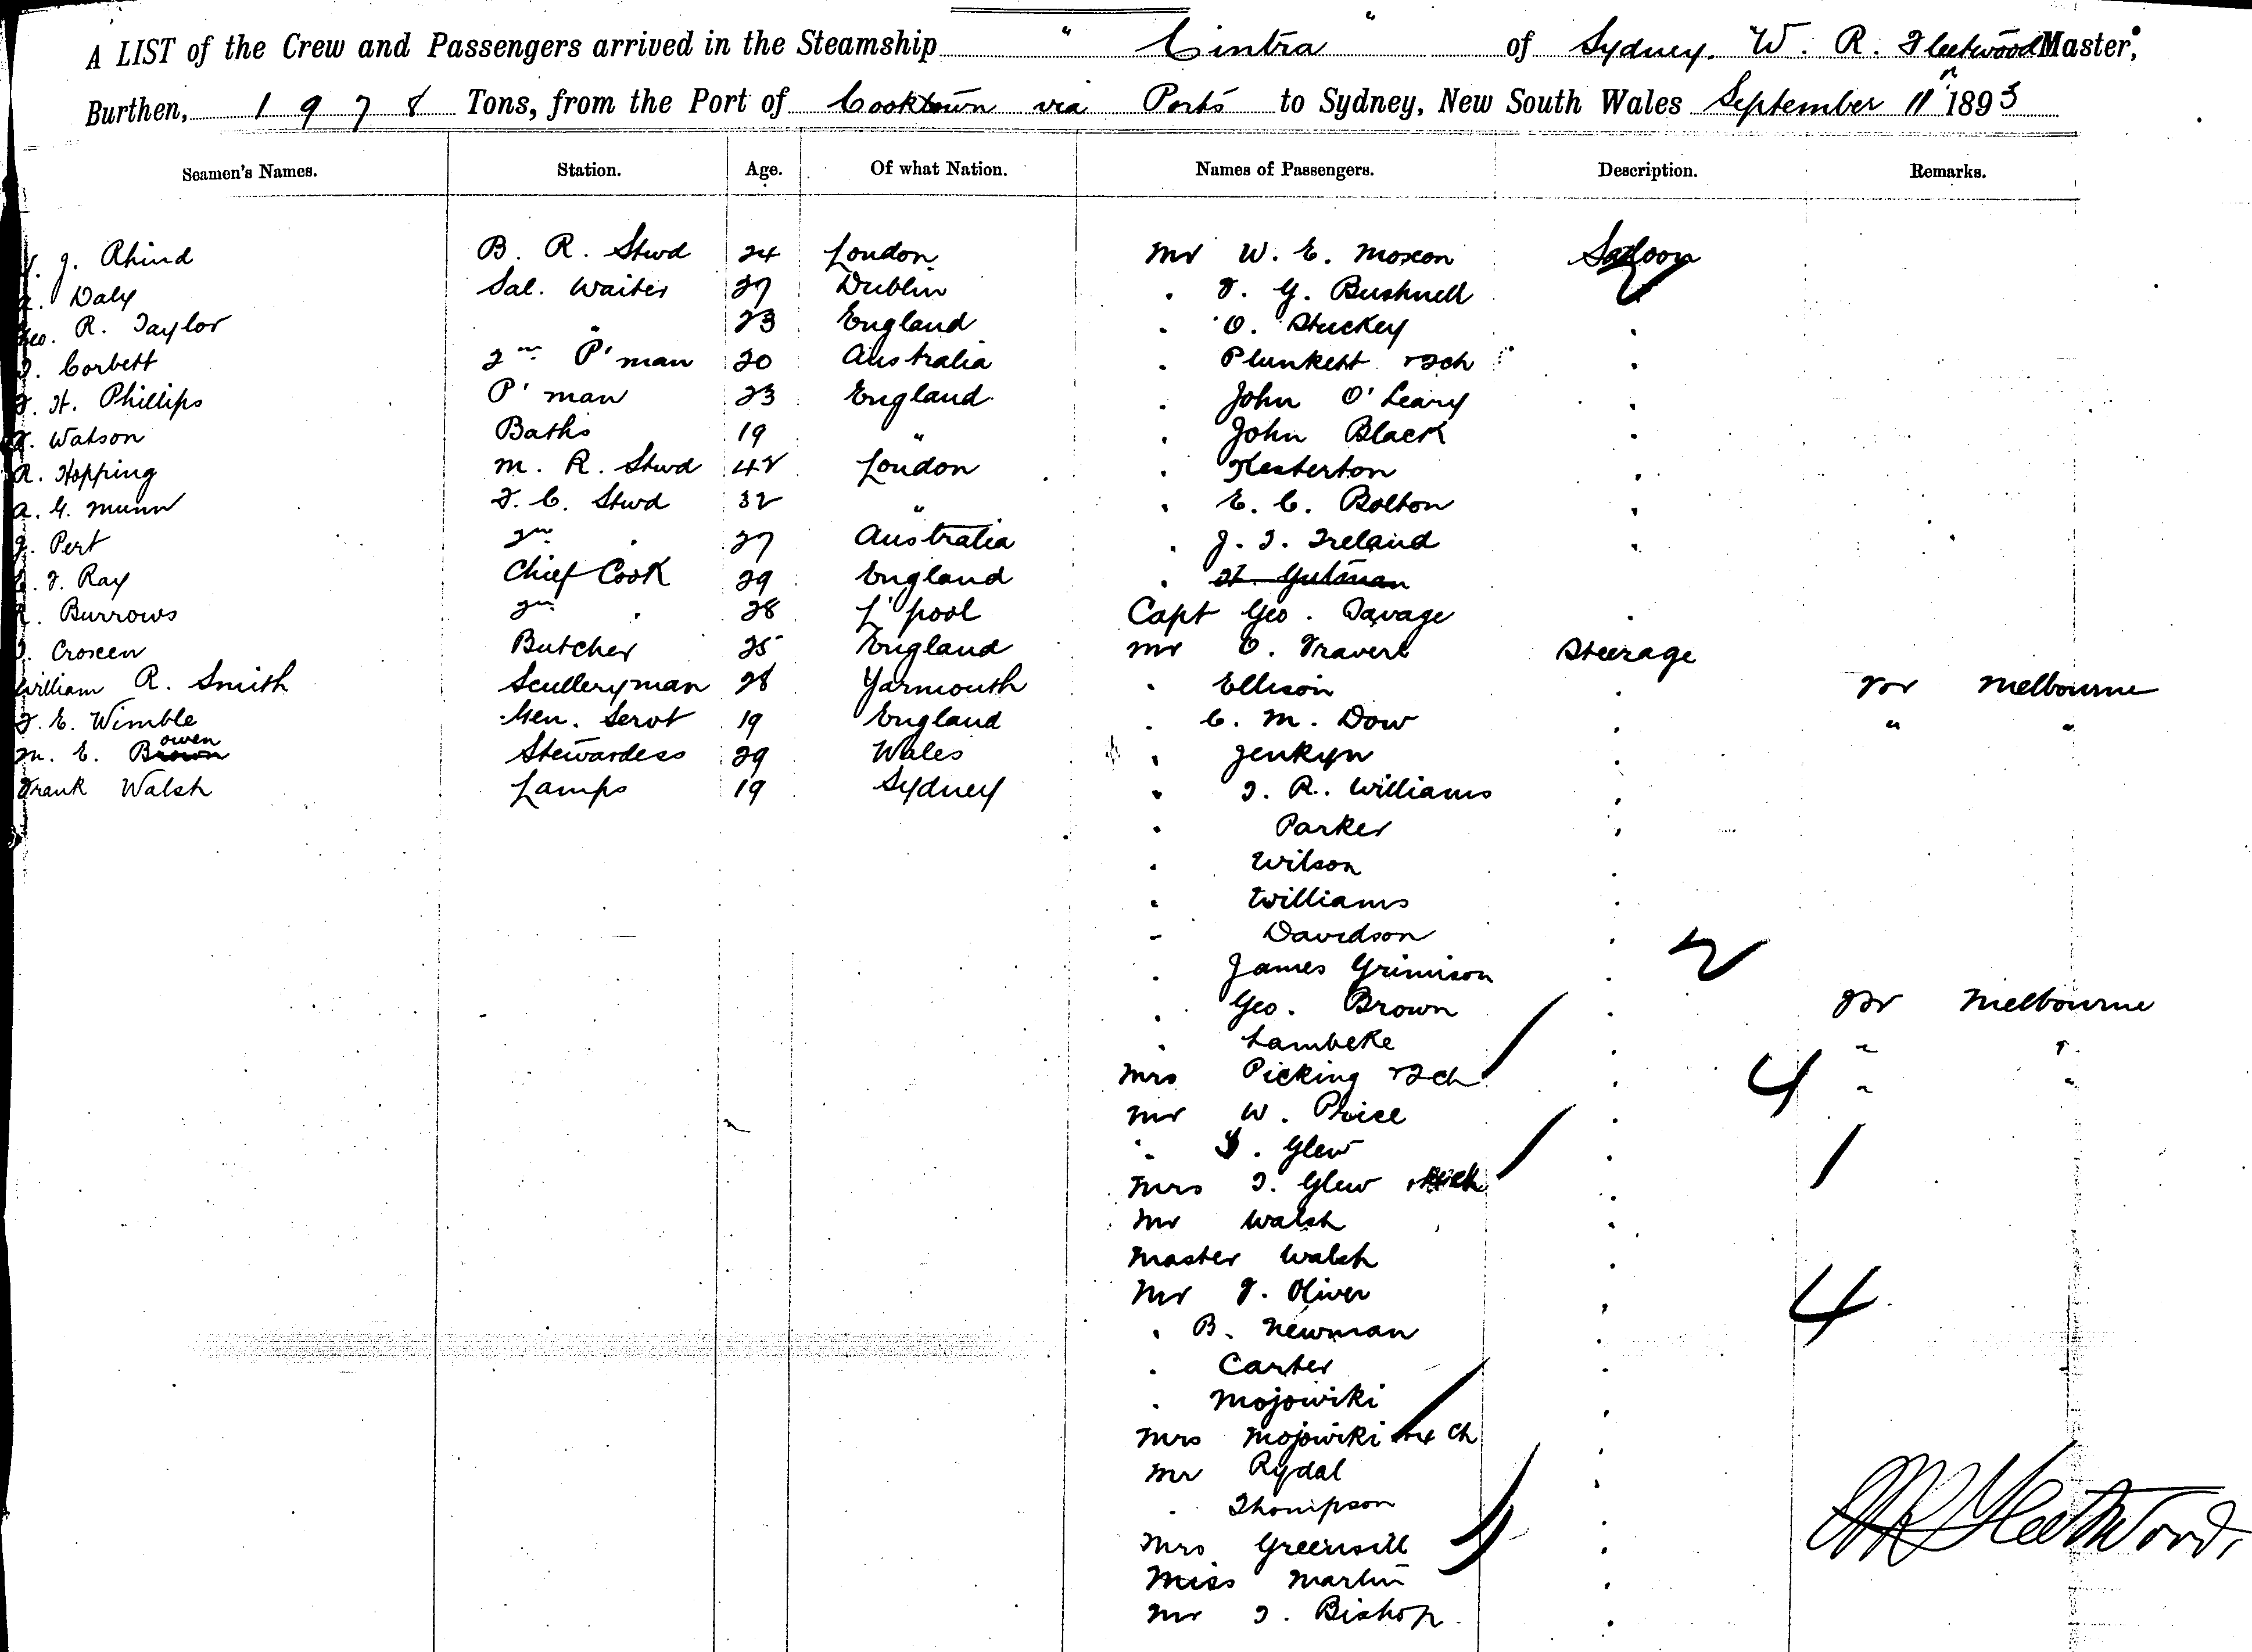 A LIST of the Crew and Passengers arrived in the Steamship " Cintra " of Sydney. W. R. Fleetwood Master,
Burthen, 1978 Tons, from the Port of Cooktown via Ports to Sydney, New South Wales September 11th 1893
Seamen's Names. Station. Age. Of what Nation. Names of Passengers. Description. Remarks.
J. Rhind B. R. Stwd 24 London Mr W. E. Moxon Saloon
Daly Sal. Waiter 27 Dublin " F. G. Bushnell
Geo. R. Taylor " 23 England " O. Stuckey "
Corbett 2nd P'man 20 Australia " Plunkett & 2ch "
F. H. Phillips P'man 23 England " John O'Leary "
Watson Baths 19 " " John Black "
R. Hopping M. R. Stwd 42 London " Hesterton "
A. G. Munn F. C. Stwd 32 " " E. C. Bolton "
J. Pert 2nd " 27 Australia " J. T. Ireland "
Ray Chief Cook 29 England " H. Gutman
Burrows 2nd " 28 L'pool Capt Geo. Savage "
Croxen Butcher 25 England Mr O. Travers Steerage
William R. Smith Sculleryman 28 Yarmouth " Ellison " For Melbourne
F. E. Wimble Gen. Servt 19 England " C. M. Dow " " "
M. E. Brown Owen Stewardess 29 Wales " Jenkyn
Frank Walsh Lamps 19 Sydney " T. R. Williams "
" Parker "
" Wilson "
" Williams "
" Davidson "
" James Grimison "
" Geo. Brown " For Melbourne
" Lambeke " " "
Mrs Picking & 2ch " 4 " "
Mr W. Price "
" Glew " 1
Mrs T. Glew "
Mr Walsh "
Master Walsh "
Mr F. Oliver " 4
" B. Newman "
" Carter "
" Mojowiki "
Mrs Mojowiki & 4 ch "
Mr Rydal "
" Thompson "
Mrs Greensill "
Miss Martin "
Mr T. Bishop "
W R Fleetwood